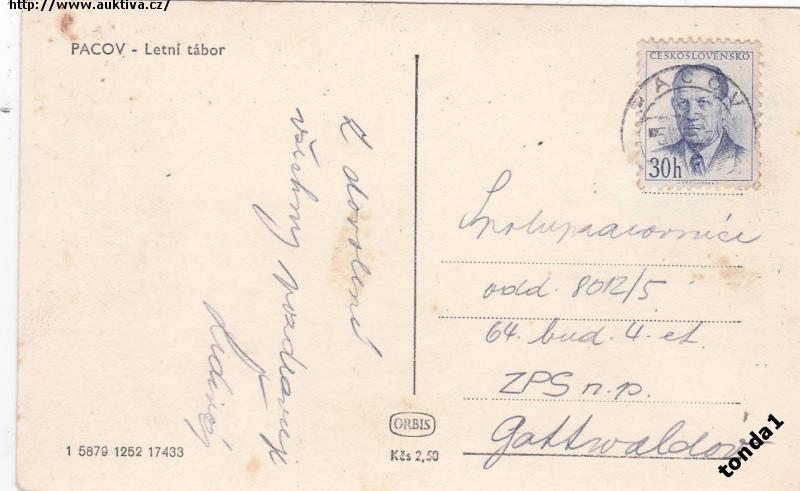 http://www.auktiva.cz/
PACOV - Letní tábor
Z dovolené
všechny pozdravuje
ČESKOSLOVENSKO
30h
PACOV
Spolupracovníci
odd. 8012/5
64. bud. 4. et.
ZPS n.p.
Gottwaldov
ORBIS
Kčs 2,50
1 5879 1252 17433
tonda1